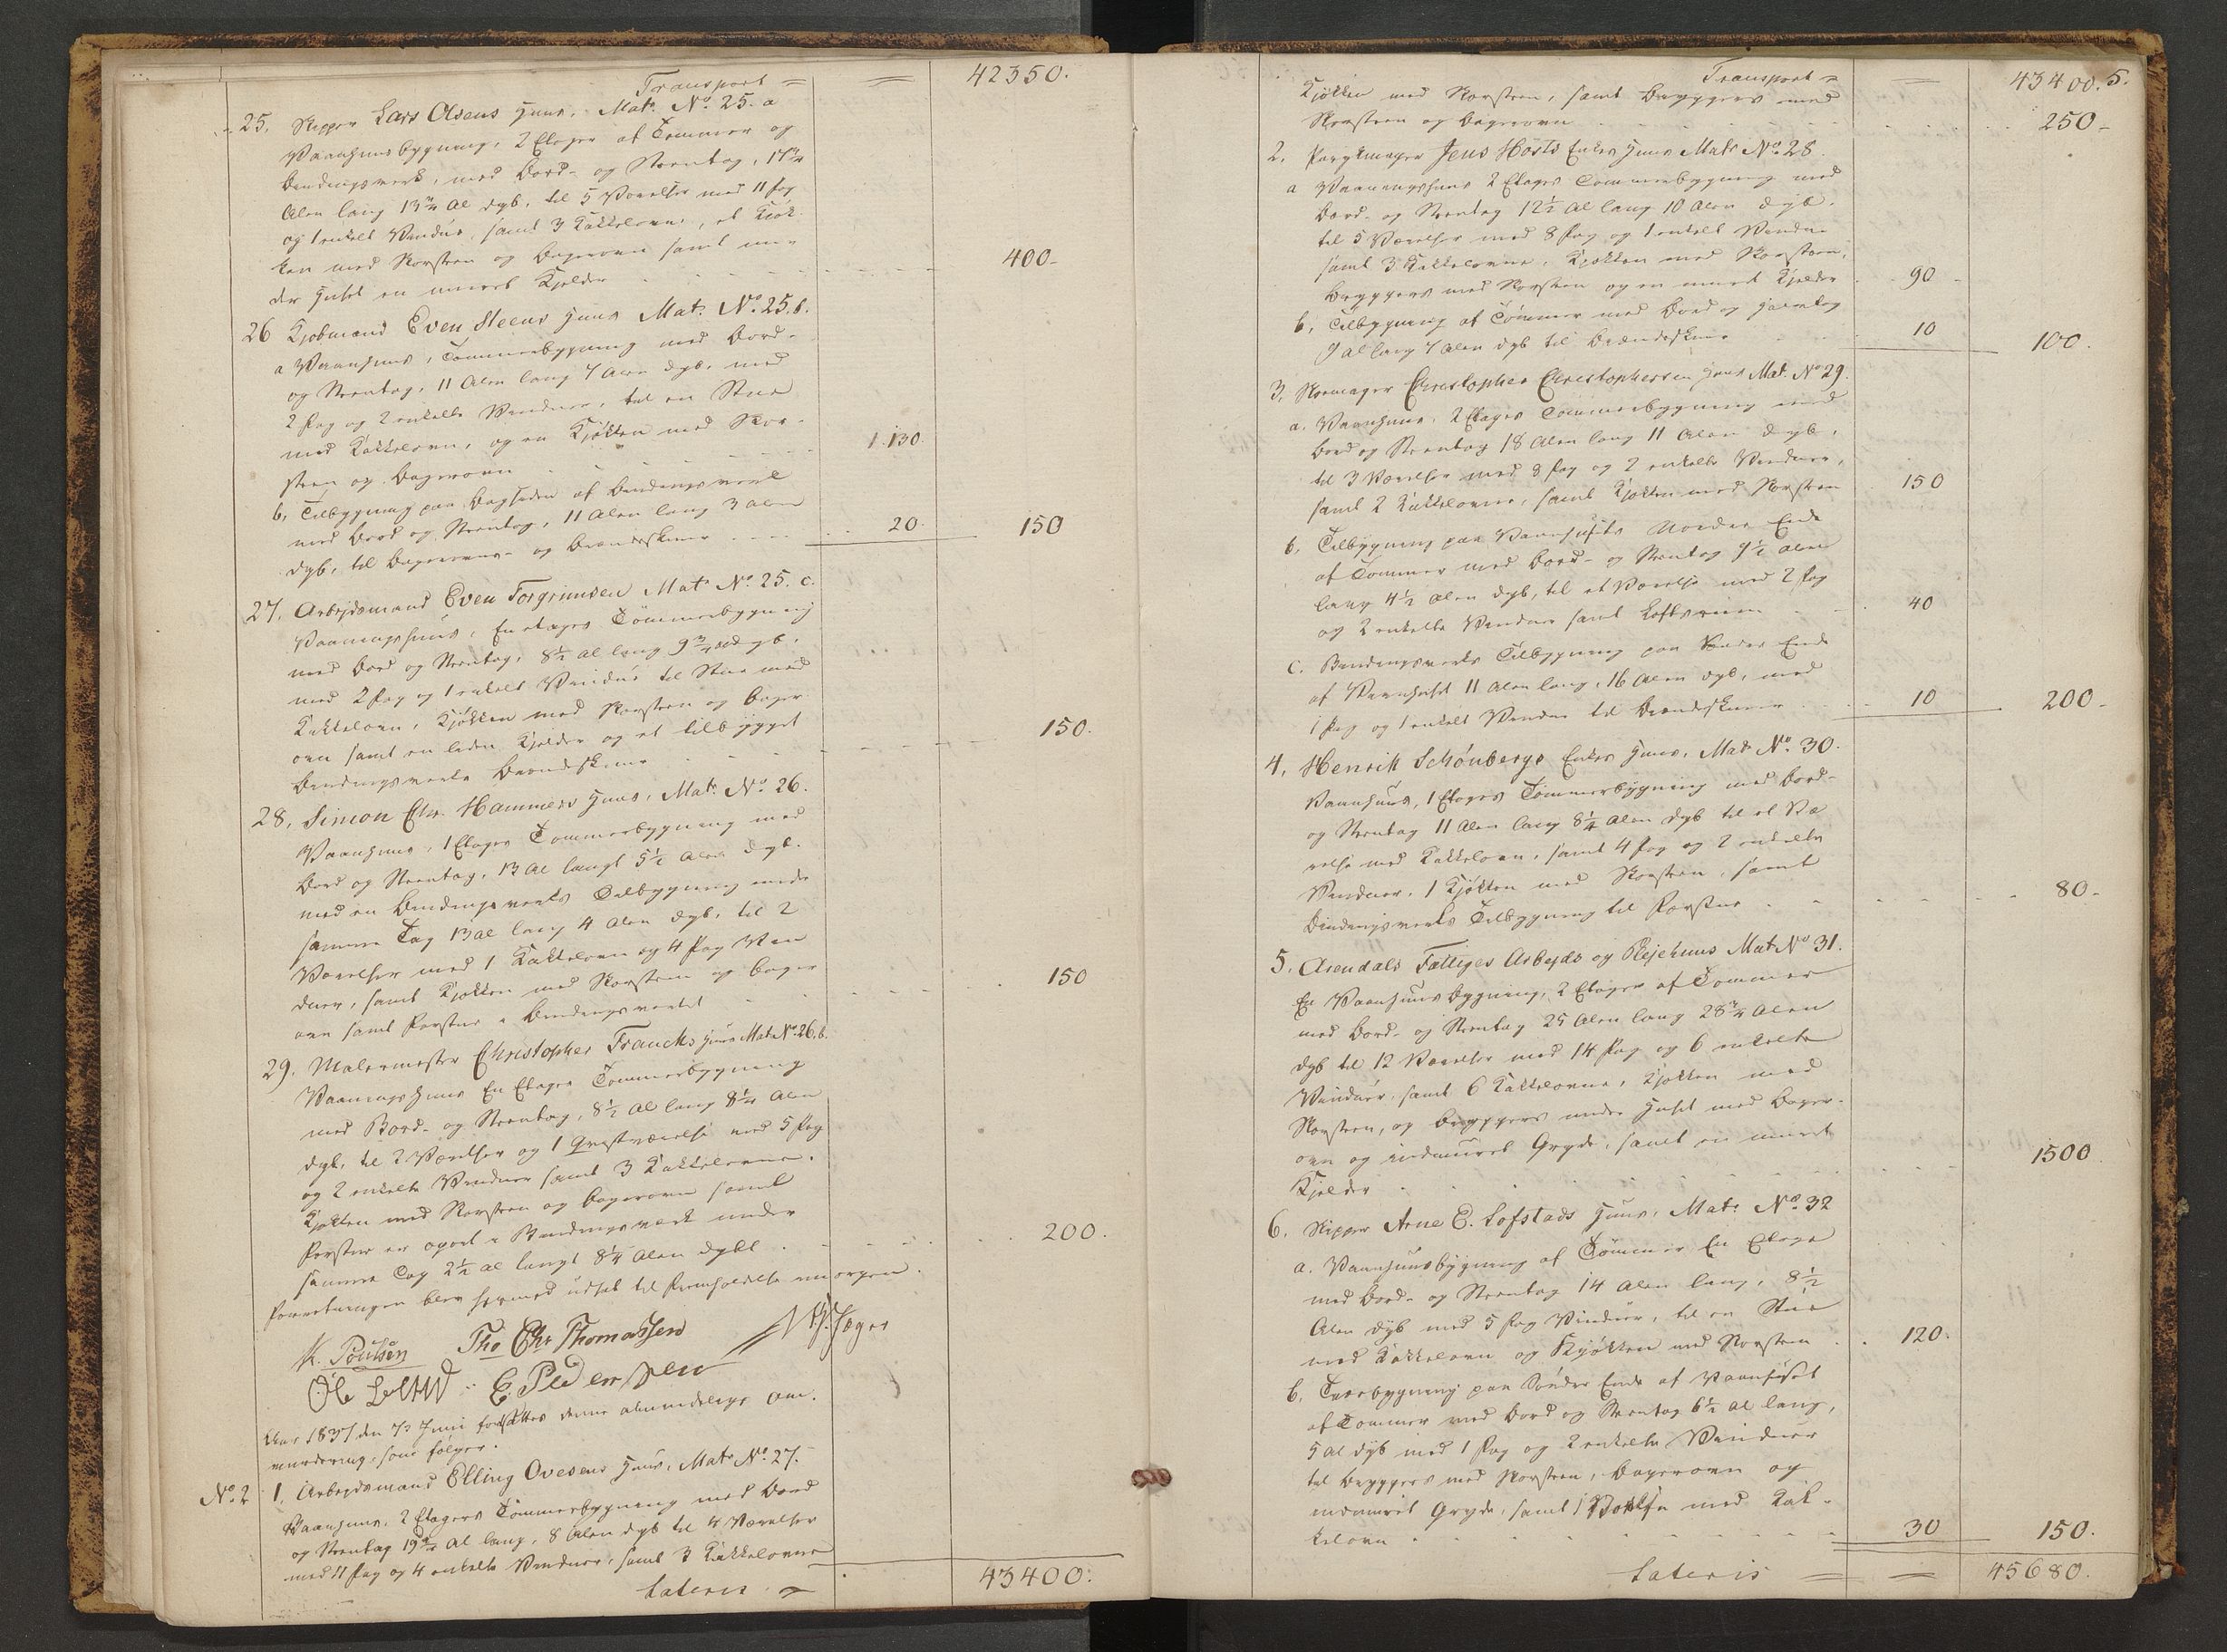 Transport = = 42350.
25. Skipper Lars Olsens Huus, Mat. No. 25. a
Vaanhuusbygning, 2 Etager af Tømmer og
Bindingsverk, med Bord- og Steentag, 17 3/4
Alen lang 13 3/4 Al dyb, til 5 Værelser med 11 Fag
og 1 enkelt Vindue, samt 3 Kakkelovne, et Kjøk-
ken med Skorsteen og Bagerovn samt un-
der Huset en muret Kjelder 400-
26 Kjøbmand Even Steens Huus Mat. No. 25. b.
a Vaanhuus, Tømmerbygning med Bord-
og Steentag, 11 Alen lang 7 Alen dyb, med
2 Fag og 2 enkelte Vinduer, til en Stue
med Kakkelovn, og en Kjøkken med Skor-
steen og Bagerovn 130.
b, Tilbygning paa Bagsiden af Bindingsverk
med Bord og Steentag, 11 Alen lang 3 Alen
dyb, til Bagerovns- og Brændeskuur 20. 150
27. Arbejdsmand Even Torgrimsen Mat No. 25. c.
Vaaningshuus, En etages Tømmerbygning
med Bord og Steentag, 8 1/2 Al lang 9 3/4 Al dyb,
med 2 Fag og 1 enkelt Vindue til Stue med
Kakkelovn, Kjøkken med Skorsteen og Bager-
ovn samt en liden Kjelder og et tilbygget
Bindingsverks Brændeskuur 150.
28, Simon Chr. Hammers Huus, Mat. No. 26.
Vaanhuus, 1 Etages Tømmerbygning med
Bord og Steentag, 13 Al langt 5 1/2 Alen dyb,
med en Bindingsverks Tilbygning under
samme Tag 13 Al lang 4 Alen dyb, til 2
Værelser med 1 Kakkelovn og 4 Fag Vin
duer, samt Kjøkken med Skorsteen og Bager
ovn samt Forstue i Bindingsverket 150
29. Malermester Christopher Francks Huus Mat No. 26. b.
Vaaningshuus En Etages Tømmerbygning
med Bord- og Steentag, 8 1/2 Al lang 8 1/4 Alen
dyb, til 2 Værelser og 1 Qvistværelse med 5 Fag
og 2 enkelte Vinduer samt 3 Kakkelovne.
Kjøkken med Skorsteen og Bagerovn samt
Forstue er opført i Bindingsværk under
samme Tag 2 1/2 Al langt 8 1/4 Alen dybt 200.
Forretningen blev hermed udsat til Fremholdelse imorgen.
K. Poulsen Tho Chr Thomassen
E. Pedersen
Aar 1837 den 7de Juni fortsattes denne almindelige Om-
vurdering, som følger.
No. 2 1, Arbejdsmand Elling Ovesens Huus, Mat. No. 27.
Vaanhuus, 2 Etagers Tømmerbygning med Bord
og Steentag 19 3/4 Al lang, 8 Alen dyb til 4 Værelser
med 11 Fag og 4 enkelte Vinduer, samt 3 Kakkelovne
Lateris = 43400.
Transport = = 43400. 5.
Kjøkken med Skorsteen, samt Bryggers med
Skorsteen og Bagerovn 250-
2. Parykmager Jens Hosts Enkes Huus Mat. No. 28.
a Vaaningshuus 2 Etages Tømmerbygning med
Bord- og Steentag 12 1/2 Al lang 10 Alen dyb,
til 5 Værelser med 8 Fag og 1 enkelt Vindue
samt 3 Kakkelovne, Kjøkken med Skorsteen,
Bryggers med Skorsteen og en muret Kjelder 90-
b, Tilbygning af Tømmer med Bord og Steentag
9 Al lang 7 Alen dyb til Brændeskuur 10 100.
3, Skomager Christopher Christophersen Huus Mat. No 29.
a. Vaanhuus, 2 Etages Tømmerbygning med
Bord og Steentag 18 Alen lang 11 Alen dyb,
til 3 Værelser med 8 Fag og 2 enkelte Vinduer,
samt 2 Kakkelovne, samt Kjøkken med Skorsteen 150
b, Tilbygning paa Vaanhusets Nordre Ende
af Tømmer med Bord- og Steentag 9 1/2 Alen
lang 4 1/2 Alen dyb, til et Værelse med 2 Fag
og 2 enkelte Vinduer samt Loftsrum 40
C. Bindingsverks Tilbygning paa Søndre Ende
af Vaanhuset 11 Alen lang, 16 Alen dyb, med
1 Fag og 1 enkelt Vindue til Brændeskuur 10 200-
4, Henrik Schönbergs Enkes Huus, Mat. No. 30.
Vaanhuus, 1 Etages Tømmerbygning med Bord-
og Steentag 11 Alen lang 8 1/4 Alen dyb til et Væ
relse med Kakkelovn, samt 4 Fag og 2 enkelte
Vinduer, 1 Kjøkken med Skorsteen, samt
Bindingsverks Tilbygning til Forstue 80-
5, Arendals Fattiges Arbejds og Plejehuus Mat No 31.
En Vaanhuusbygning, 2 Etager af Tømmer
med Bord- og Steentag 25 Alen lang 28 3/4 Alen
dyb til 12 Værelser med 14 Fag og 6 enkelte
Vinduer, samt 6 Kakkelovne, Kjøkken med
Skorsteen, og Bryggers under Huset med Bager-
ovn og indmuret Gryde, samt en muret
Kjelder 1500
6. Skipper Arne E. Lofstads Huus, Mat. No. 32
a. Vaanhuusbygning af Tømmer En Etage
med Bord- og Steentag 14 Alen lang, 8 1/2
Alen dyb med 5 Fag Vinduer, til en Stue
med Kakkelovn og Kjøkken med Skorsteen 120.
b. Tverbygning paa Søndre Ende af Vaanhuset
af Tømmer med Bord og Steentag 6 1/2 Al lang,
5 Al dyb med 1 Fag og 2 enkelte Vinduer
til Bryggers med Skorsteen, Bagerovn og
indmuret Gryde, samt 1 Værelse med Kak-
kelovn 30 150.
Lateris = = 45680.